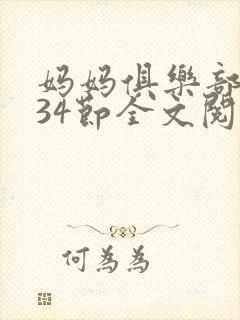 妈妈俱樂部
34節全文閱
何為為